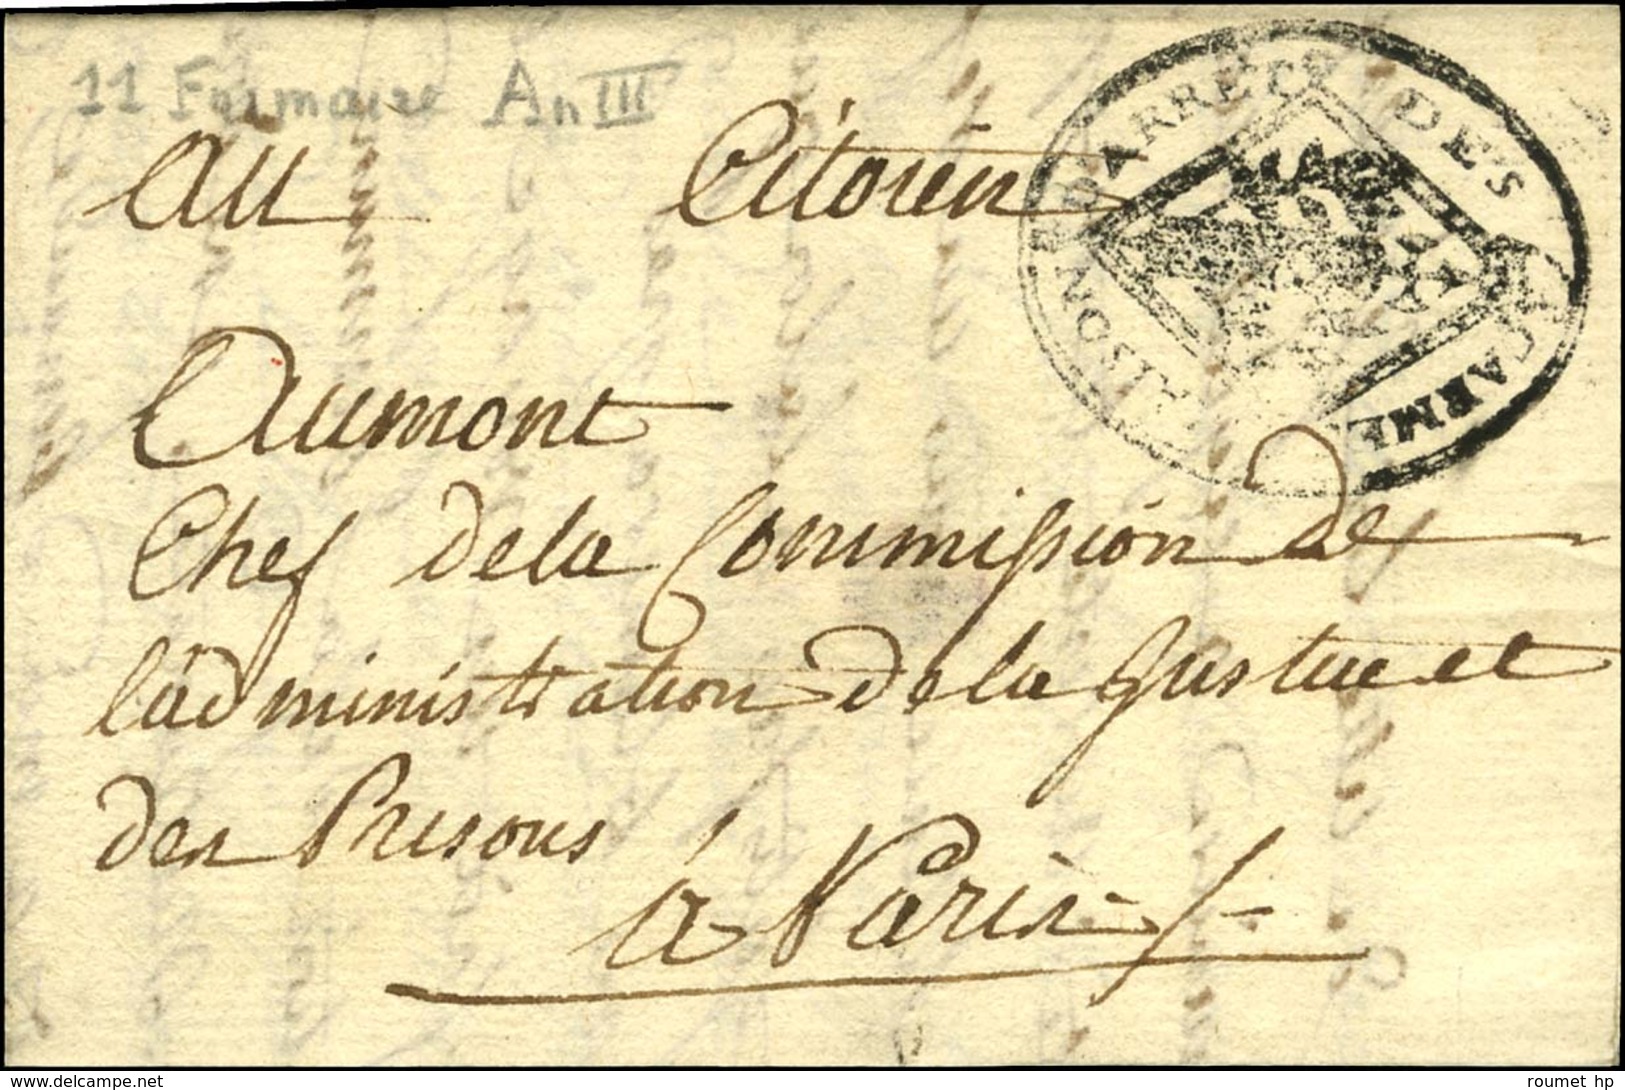 11 Frimaire An III
MAISON D'ARRET DES CARMES
au Citoien
Aumont
Chef de la Commission de
l'administration de la Justice et
des Prisons
à Paris
www.delcampe.net
roumet hp